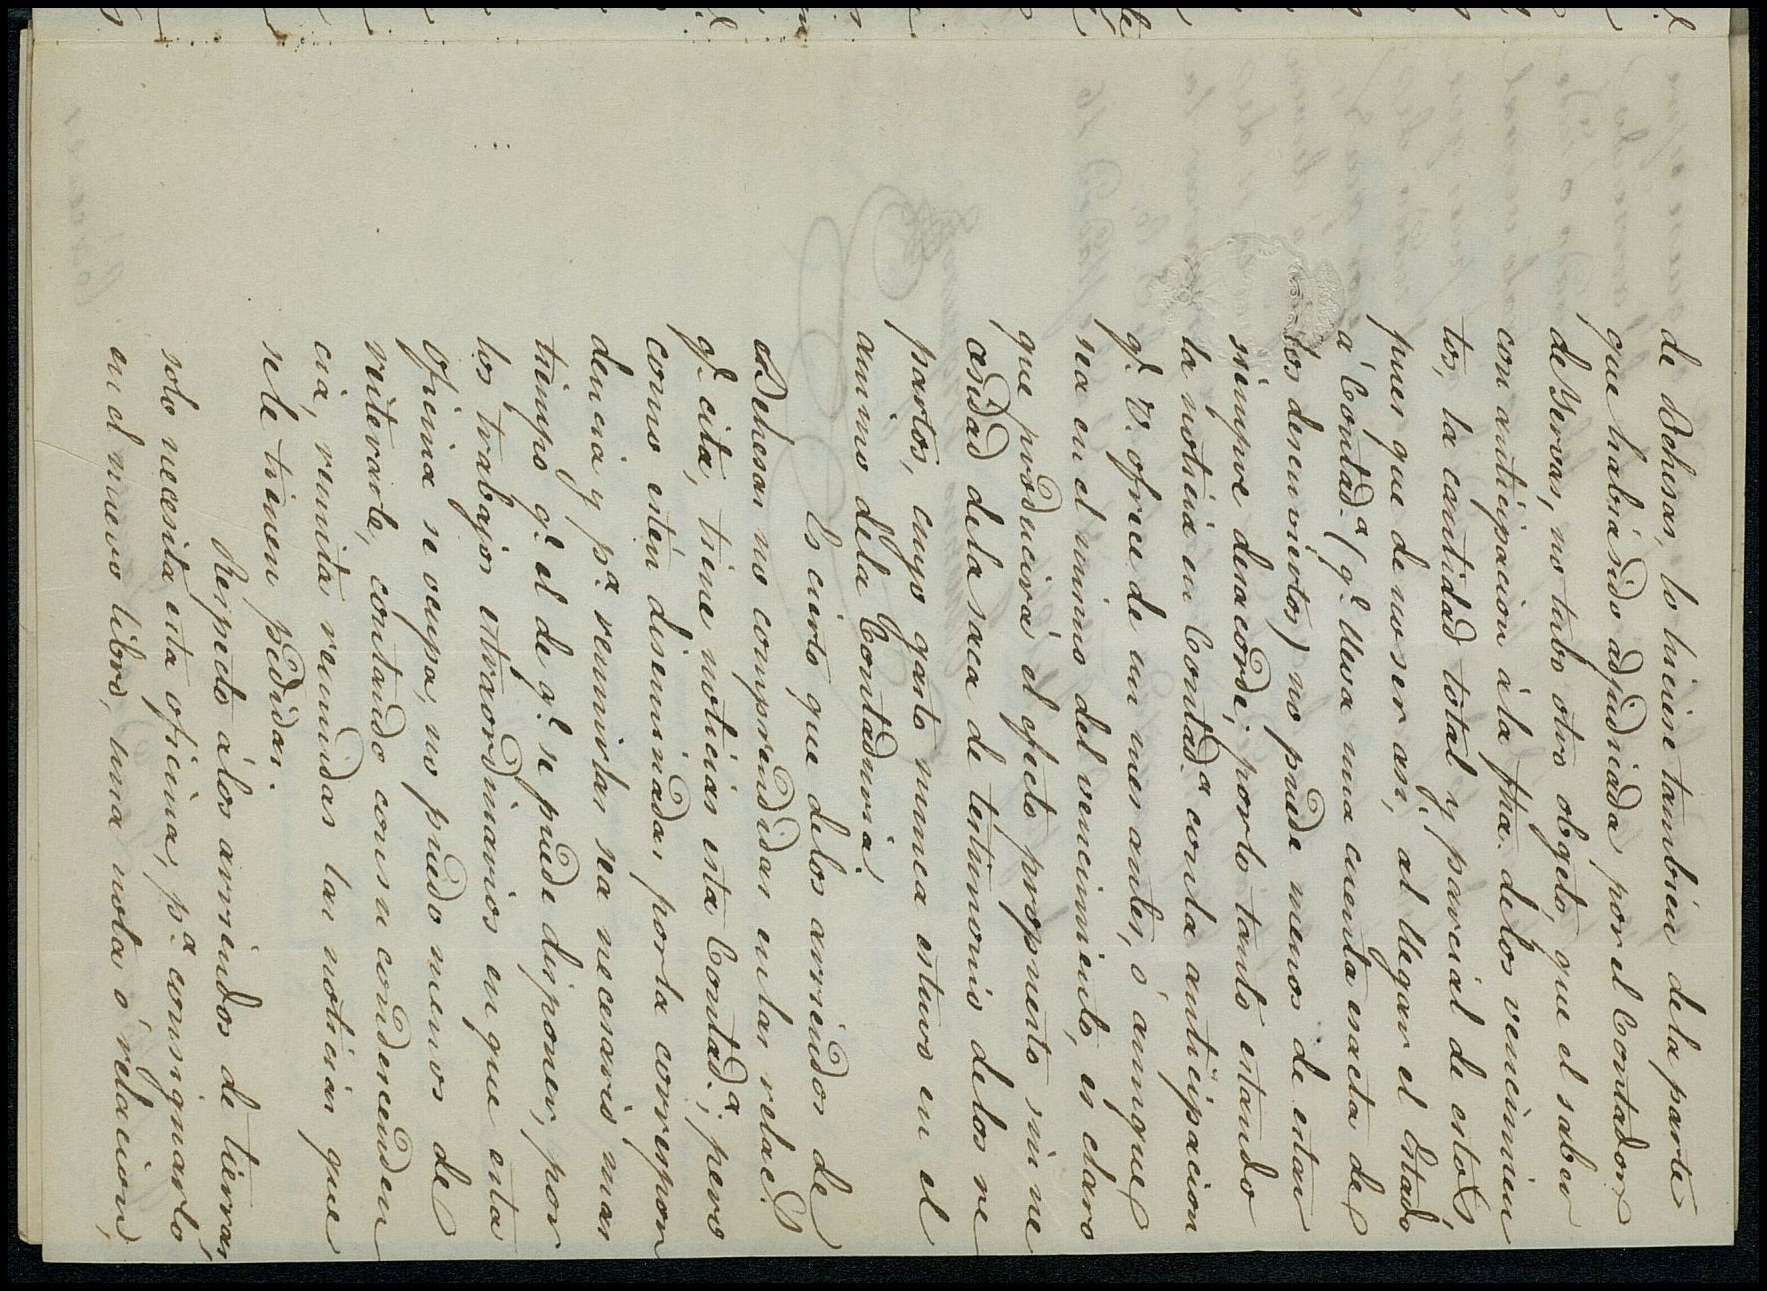 de Dehesas, lo hiciere tambien de la parte
que habia sido adjudicada por el Contador
de Yervas, no tubo otro objeto, que el saber
con anticipacion à la fha. de los vencimien
tos, la cantidad total y parcial de estos,
pues que de no ser asi, al llegar el Estado
á Contad.ª (q.e lleva una cuenta esacta de
los descuviertos) no puede menos de estar
siempre desacorde; por lo tanto estando
la noticia en Contad.ª con la anticipacion
q.e V. ofrece de un mes antes, ó aunque
sea en el mismo del vencimiento, es claro
que producirá el efecto propuesto sin ne
cesidad de la saca de testimonio de los re
partos, cuyo gasto nunca estuvo en el
animo de la Contaduria.
Es cierto que de los arriendos de
Dehesas no comprendidas en las relac.s
q.e cita, tiene noticias esta Contad.ª; pero
como estén diseminadas por la correspon
dencia y p.ª reunirlas sea necesario mas
tiempo q.e el de q.e se puede disponer, por
los trabajos extraordinarios en que esta
Oficina se ocupa, no puedo menos de
reiterarle, contando con su condescenden
cia, remita reunidas las noticias que
se le tienen pedidas.
Respecto á los arriendos de tierras,
solo necesita esta oficina, p.ª consignarlo
en el nuevo libro, una nota ó relacion,